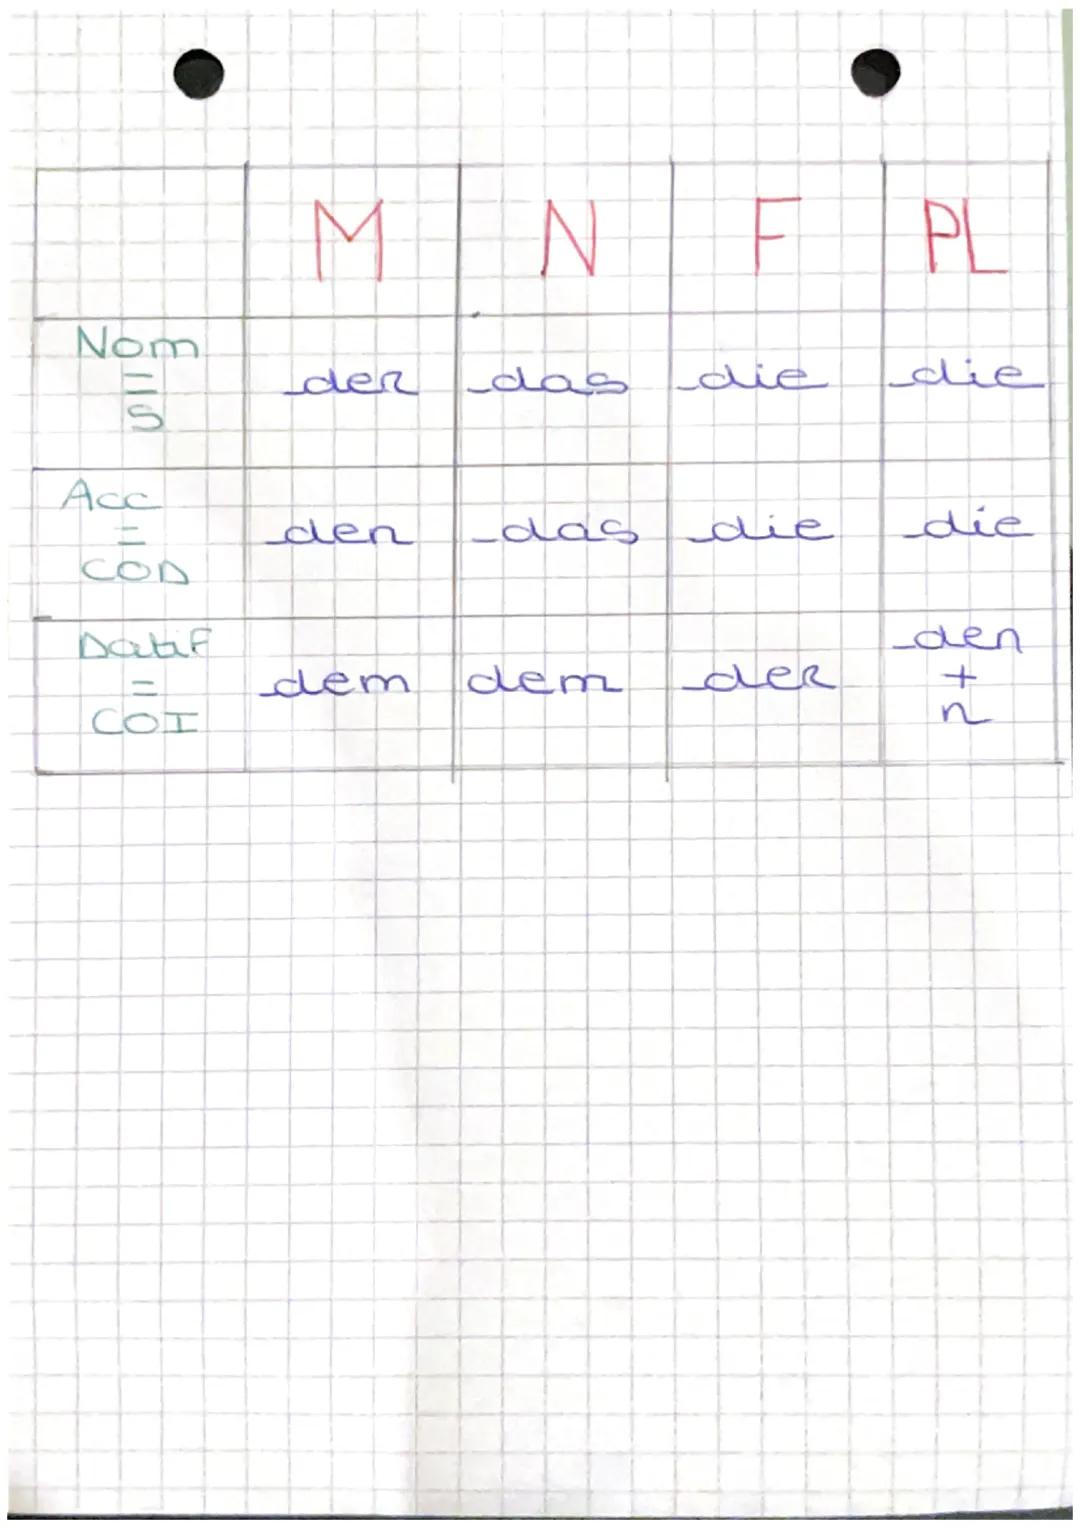 M N F PL
Nom
=
S
der das die die
Acc
=
COD
den das die die
Datif
=
COI
dem dem der den
+
n